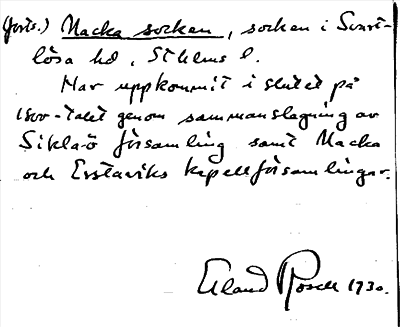 (forts.) Nacka socken, socken i Svart-
lösa hd, Sthlms l.
Har uppkommit i slutet på
1800-talet genom sammanslagning av
Sicklaö församling samt Nacka
och Erstaviks kapellförsamlingar.
Erland Rosell 1930.